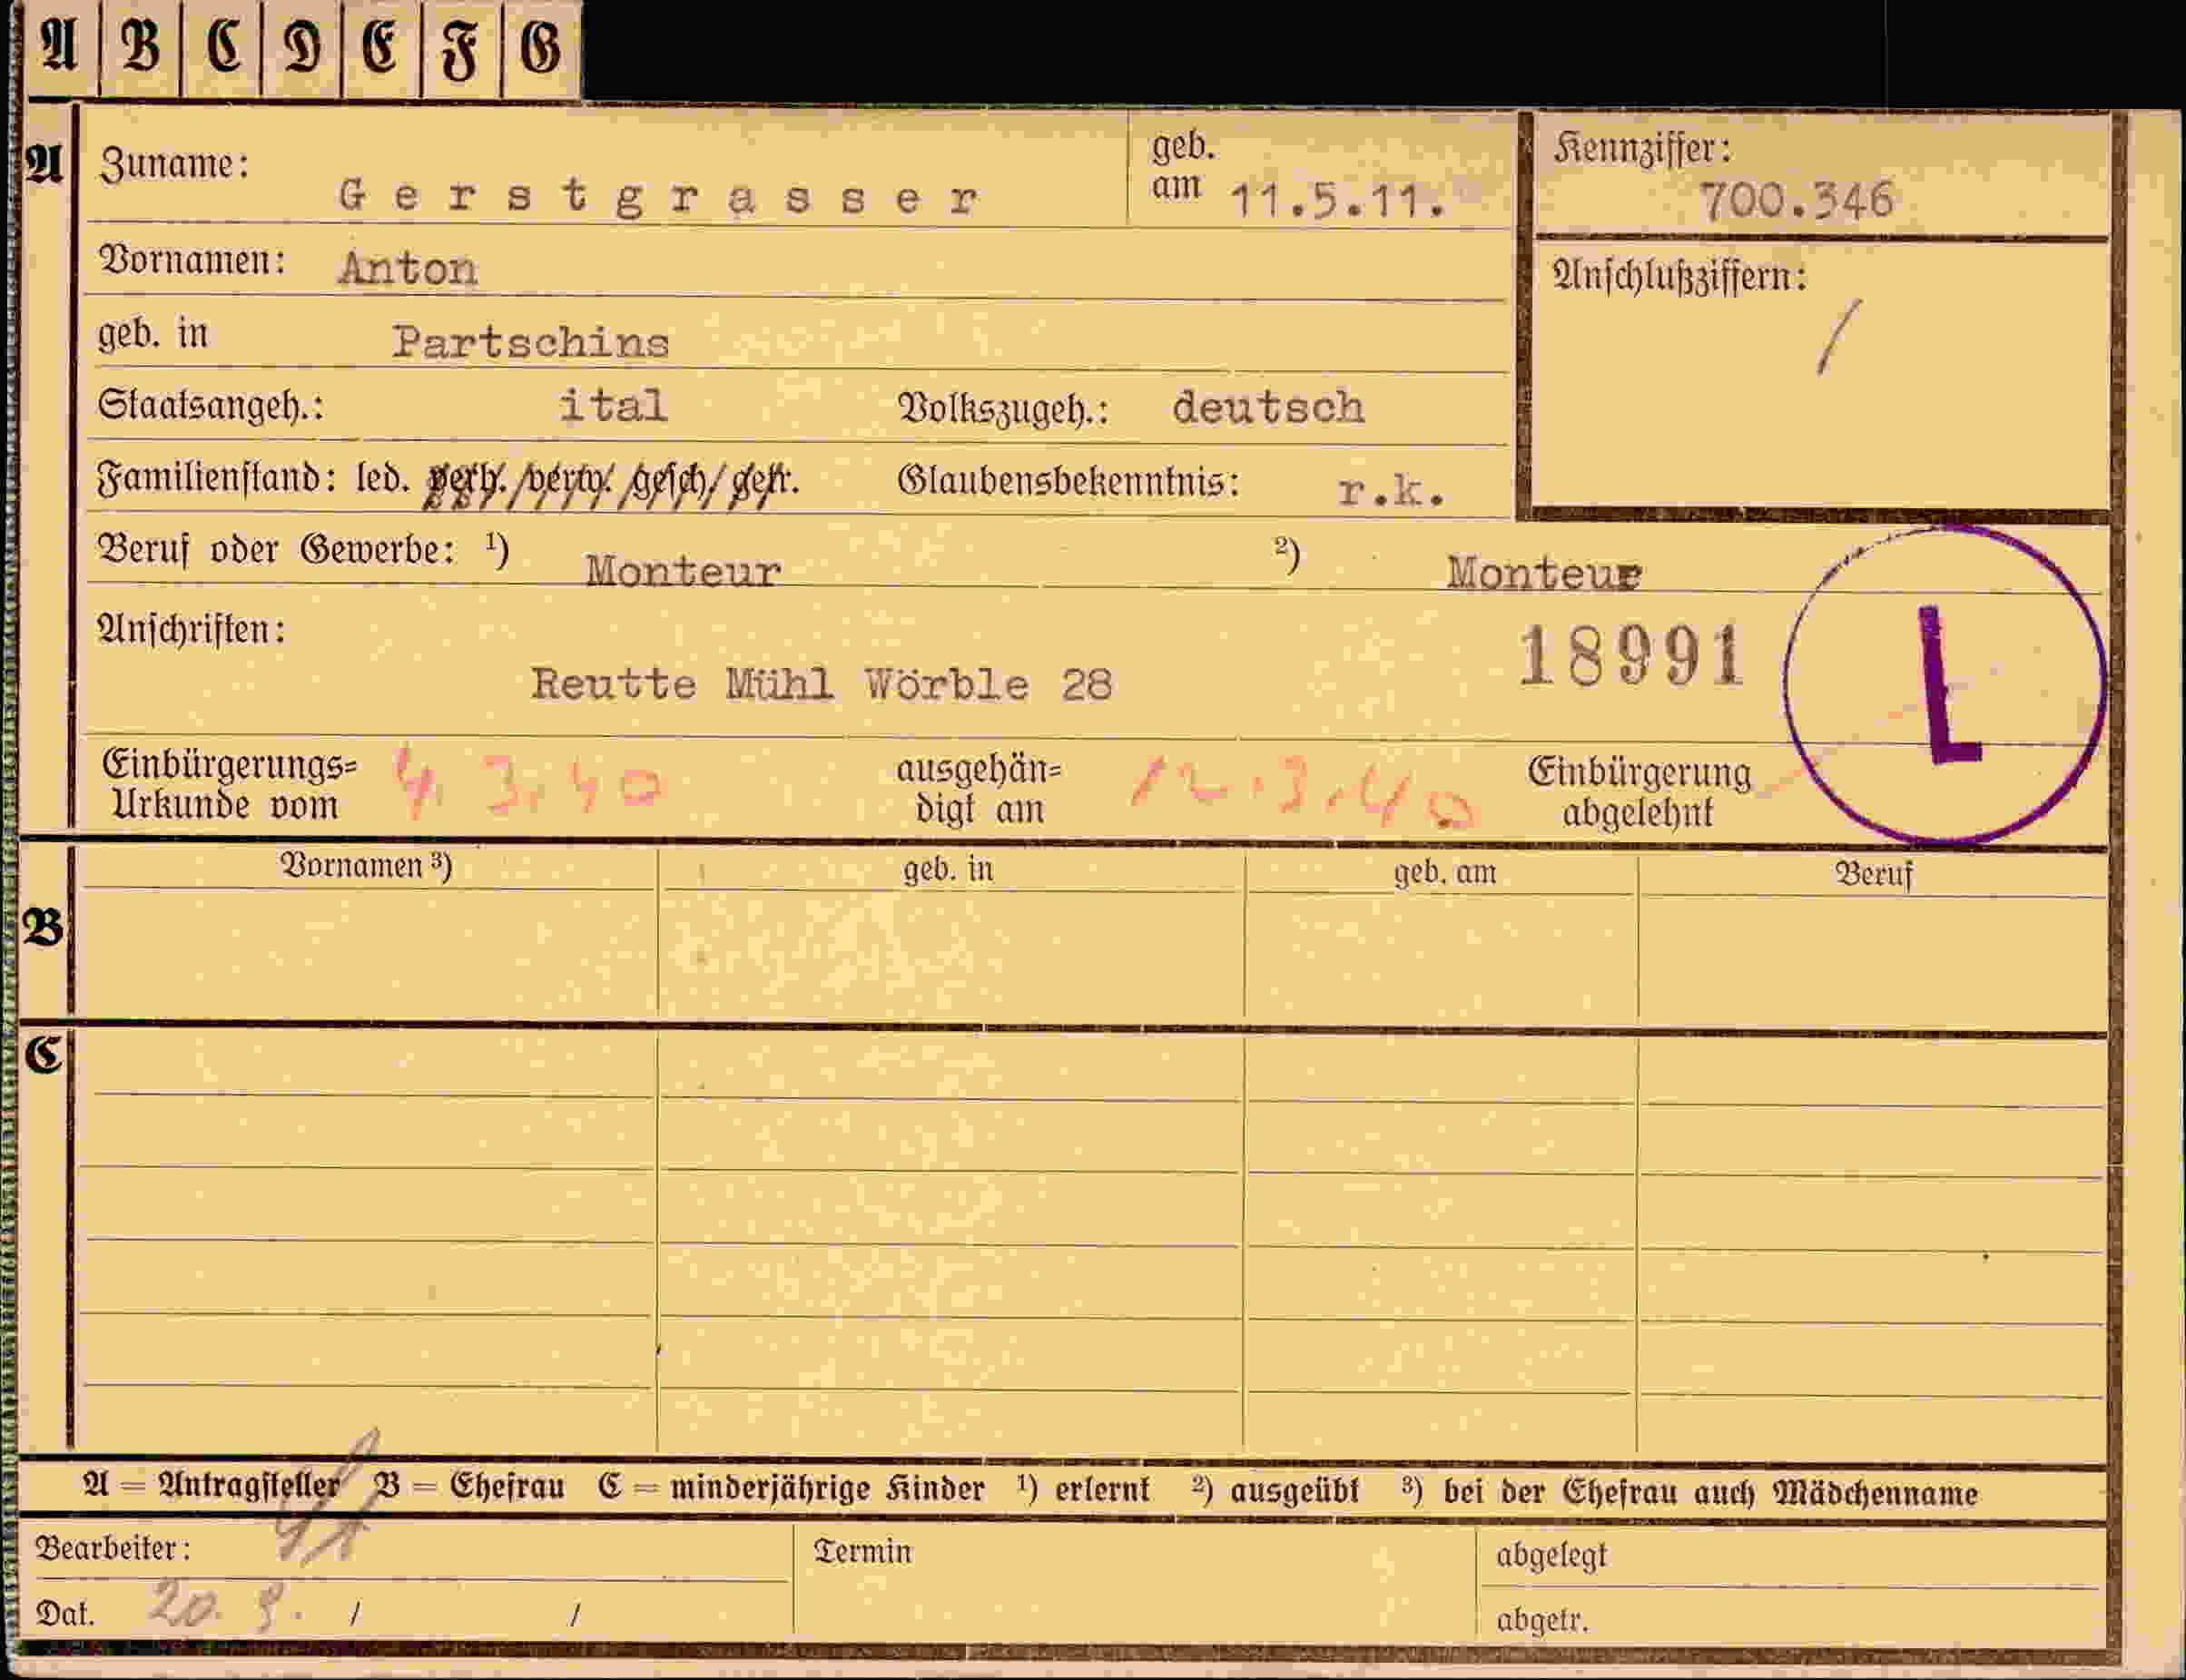 A B C D E F G
A Zuname: Gerstgrasser geb. am 11.5.11. Kennziffer: 700.346
Vornamen: Anton Anschlußziffern: /
geb. in Partschins
Staatsangeh.: ital Volkszugeh.: deutsch
Familienstand: led. verh. / verw. / gesch. / getr. Glaubensbekenntnis: r.k.
Beruf oder Gewerbe: ¹) Monteur ²) Monteur
Anschriften: 18991 L
Reutte Mühl Wörble 28
Einbürgerungs= ausgehän= Einbürgerung
Urkunde vom 4. 3. 40 digt am 12.3.40 abgelehnt
Vornamen ³) geb. in geb. am Beruf
B
C
A = Antragsteller B = Ehefrau C = minderjährige Kinder ¹) erlernt ²) ausgeübt ³) bei der Ehefrau auch Mädchenname
Bearbeiter: Termin abgelegt
Dat. 20. 9. / / abgetr.